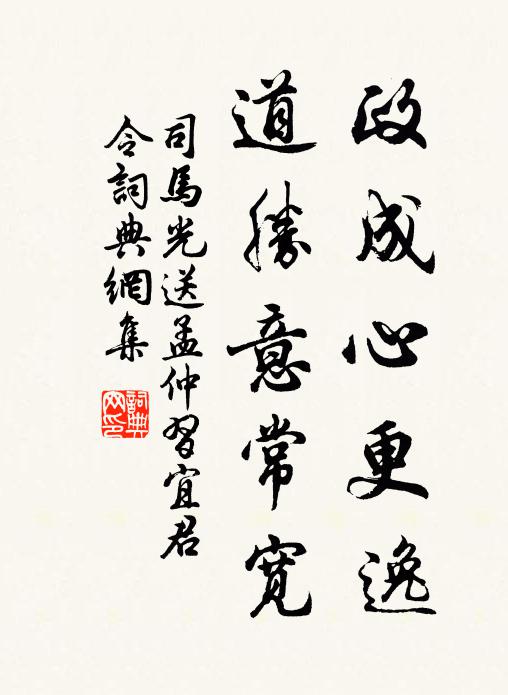 政成心更逸
道勝意常寬
司馬光送孟仲習宜君
令詞典網集
詞典
网印